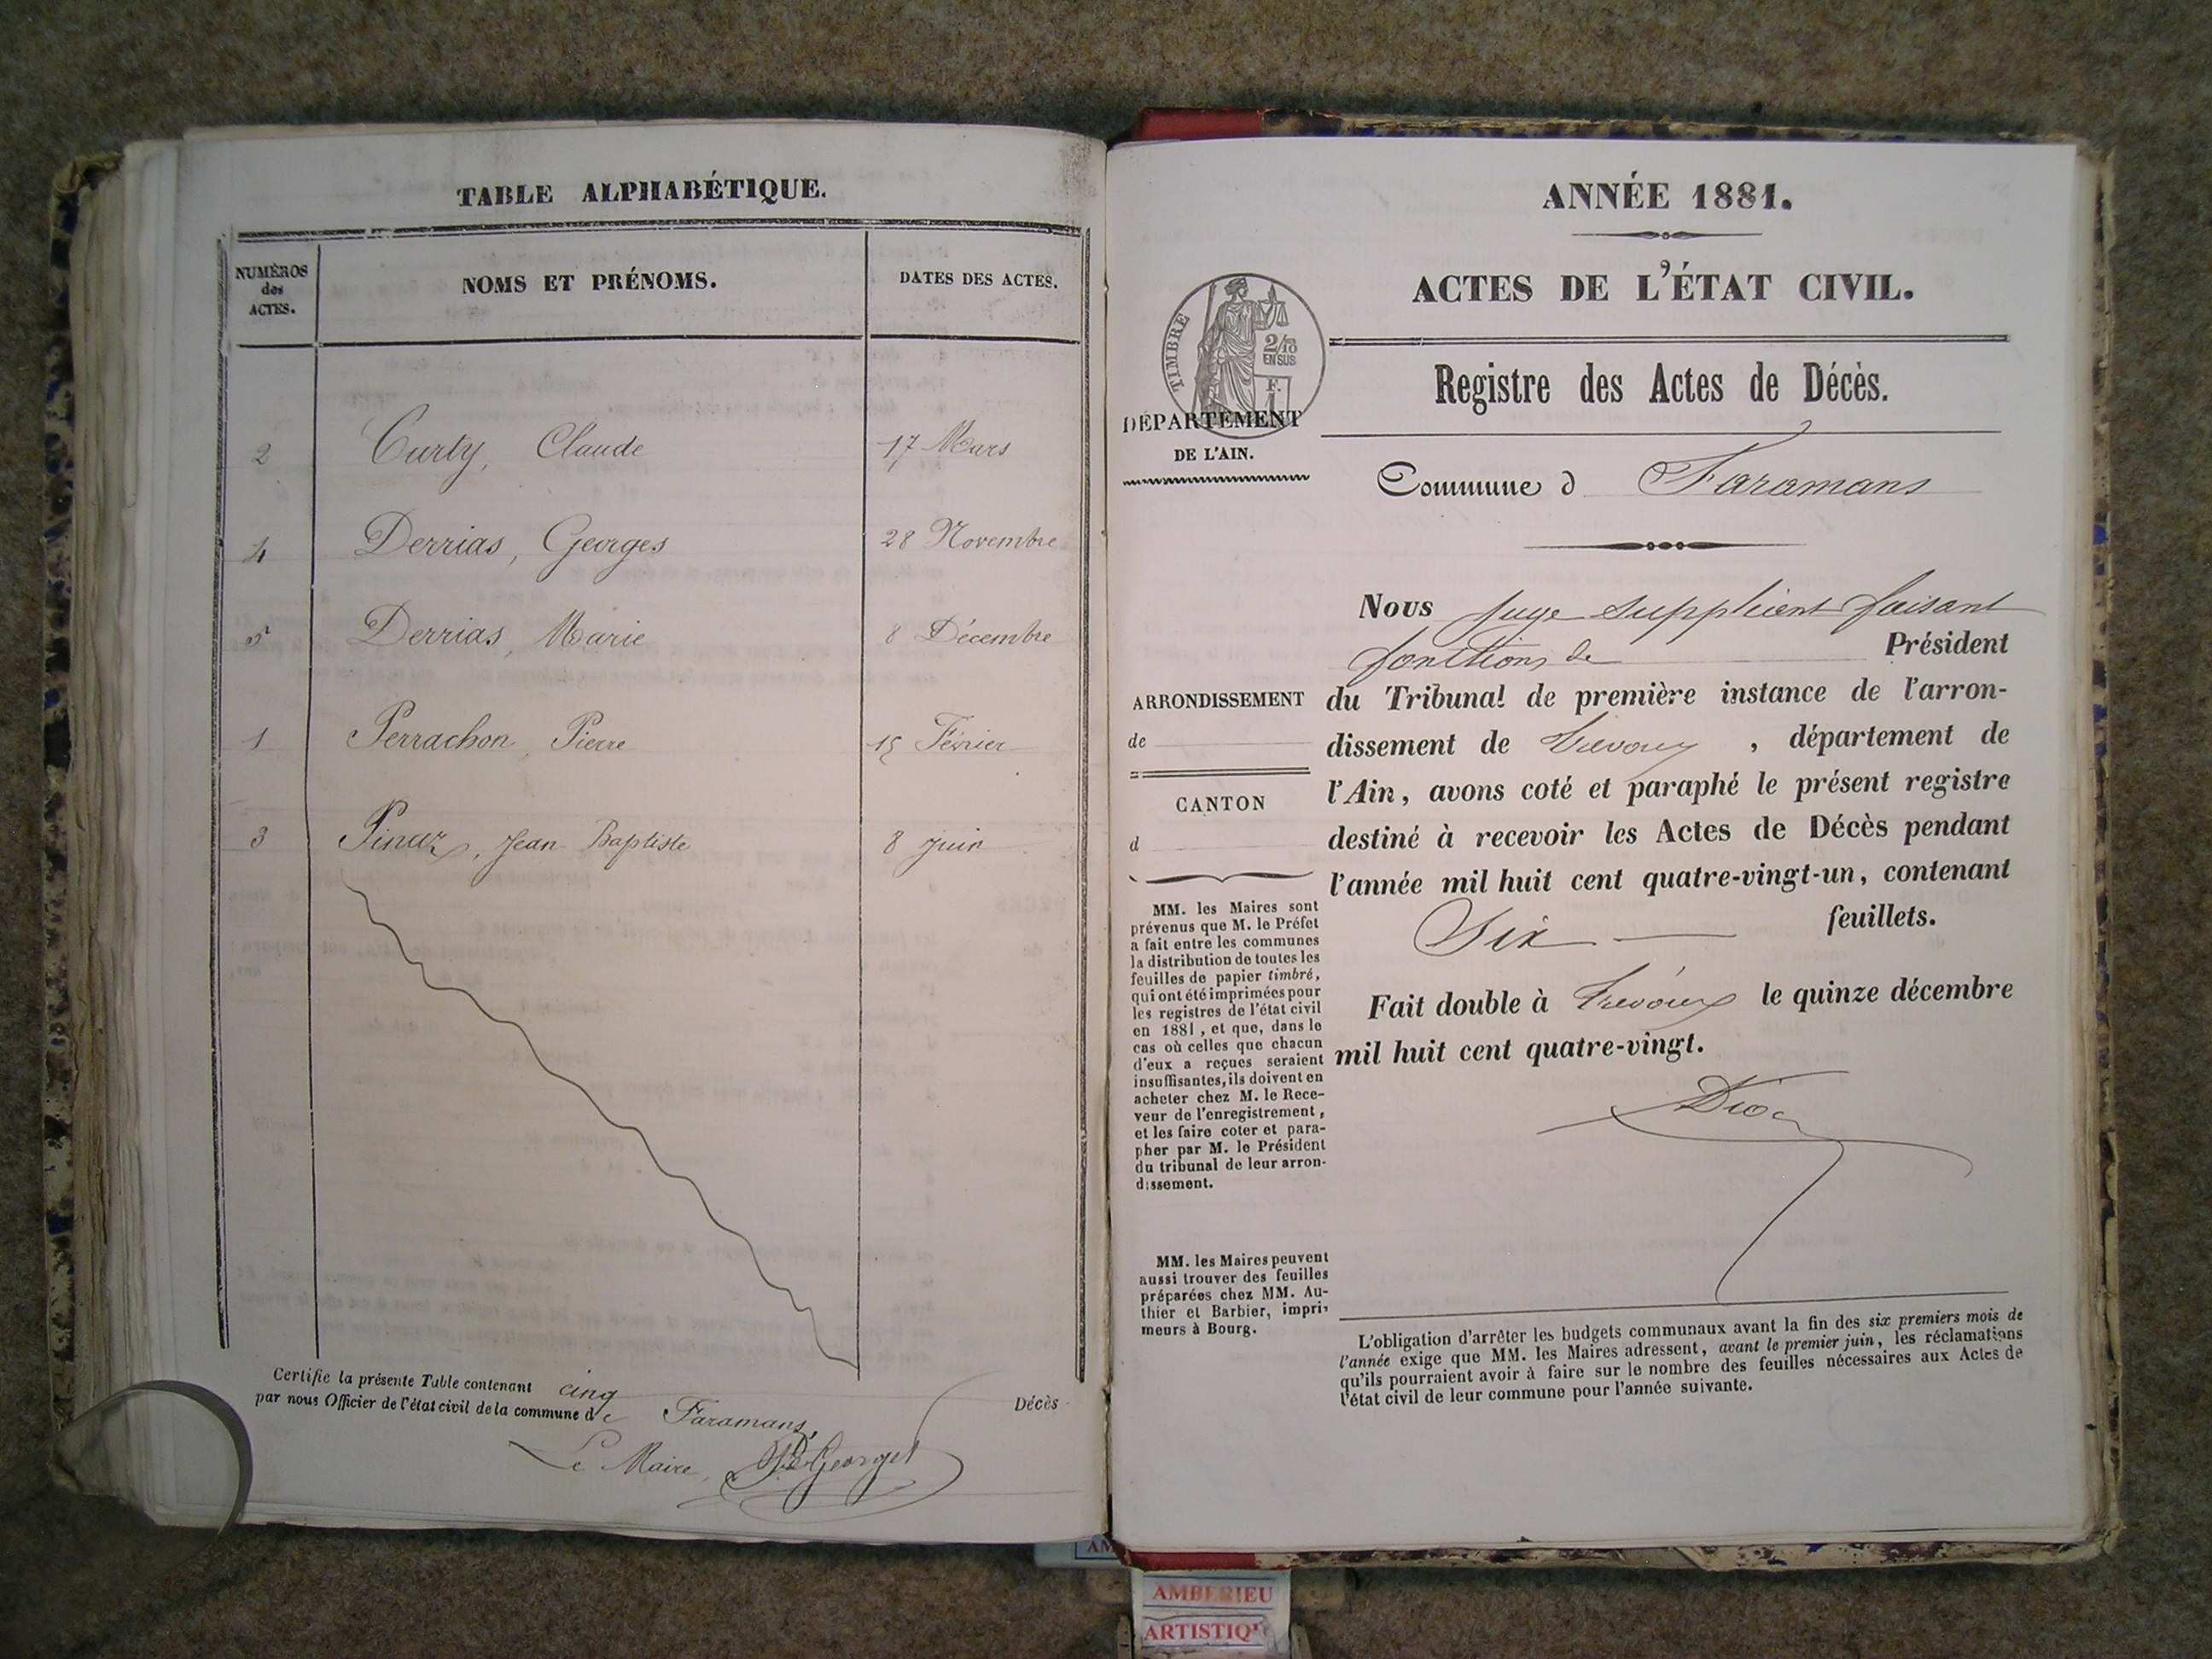 TABLE ALPHABÉTIQUE.
NUMÉROS des ACTES.
NOMS ET PRÉNOMS.
DATES DES ACTES.
2 Curty, Claude 17 Mars
4 Derrias, Georges 28 Novembre
5 Derrias, Marie 8 Décembre
1 Perrachon, Pierre 15 Février
3 Pinaz, Jean Baptiste 8 juin
Certifie la présente Table contenant cinq Décès
par nous Officier de l'état civil de la commune de Faramans,
Le Maire, Georget
ANNÉE 1881.
ACTES DE L'ÉTAT CIVIL.
TIMBRE
2/10
EN SUS
F.
DÉPARTEMENT
DE L'AIN.
Registre des Actes de Décès.
Commune d Faramans
Nous juge suppléent faisant
fonctions de Président
du Tribunal de première instance de l'arron-
dissement de Trévoux, département de
l'Ain, avons coté et paraphé le présent registre
destiné à recevoir les Actes de Décès pendant
l'année mil huit cent quatre-vingt-un, contenant
Six feuillets.
Fait double à Trévoux le quinze décembre
mil huit cent quatre-vingt.
ARRONDISSEMENT
de
CANTON
d
MM. les Maires sont
prévenus que M. le Préfet
a fait entre les communes
la distribution de toutes les
feuilles de papier timbré,
qui ont été imprimées pour
les registres de l'état civil
en 1881, et que, dans le
cas où celles que chacun
d'eux a reçues seraient
insuffisantes, ils doivent en
acheter chez M. le Rece-
veur de l'enregistrement,
et les faire coter et para-
pher par M. le Président
du tribunal de leur arron-
dissement.
MM. les Maires peuvent
aussi trouver des feuilles
préparées chez MM. Au-
thier et Barbier, impri-
meurs à Bourg.
L'obligation d'arrêter les budgets communaux avant la fin des six premiers mois de
l'année exige que MM. les Maires adressent, avant le premier juin, les réclamations
qu'ils pourraient avoir à faire sur le nombre des feuilles nécessaires aux Actes de
l'état civil de leur commune pour l'année suivante.
AMBERIEU
ARTISTIQ